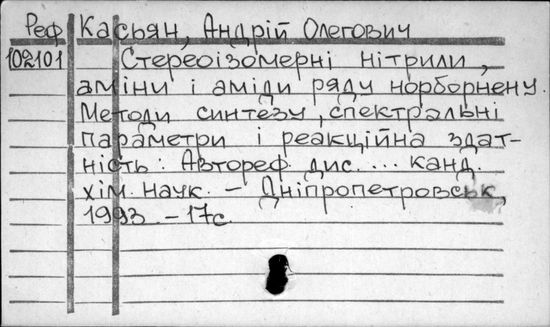 Реф Касьян, Андрій Олегович
102101 Стереоізомерні нітрили,
аміни і аміди ряду норборнену.
Методи синтезу, спектральні
параметри і реакційна здат-
ність: Автореф. дис. ... канд.
хім. наук. - Дніпропетровськ,
1993. - 17с.